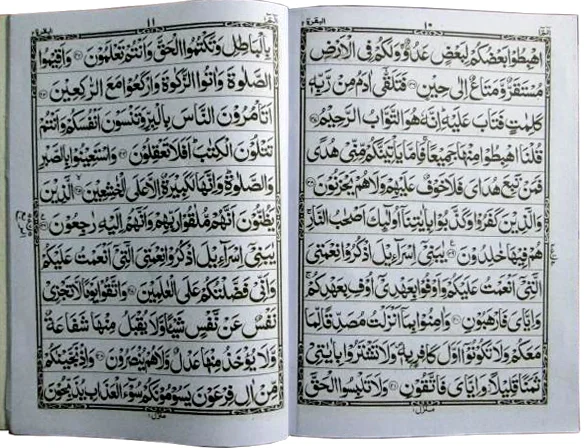 البقرة ٢
١٠
اهْبِطُوْا بَعْضُكُمْ لِبَعْضٍ عَدُوٌّ وَلَكُمْ فِى الْاَرْضِ
مُسْتَقَرٌّ وَّمَتَاعٌ اِلٰى حِيْنٍ ۝ فَتَلَقّٰٓى اٰدَمُ مِنْ رَّبِّهٖ
كَلِمٰتٍ فَتَابَ عَلَيْهِ اِنَّهٗ هُوَ التَّوَّابُ الرَّحِيْمُ ۝
قُلْنَا اهْبِطُوْا مِنْهَا جَمِيْعًا فَاِمَّا يَاْتِيَنَّكُمْ مِّنِّىْ هُدًى
فَمَنْ تَبِعَ هُدَاىَ فَلَا خَوْفٌ عَلَيْهِمْ وَلَا هُمْ يَحْزَنُوْنَ ۝
وَالَّذِيْنَ كَفَرُوْا وَكَذَّبُوْا بِاٰيٰتِنَآ اُولٰٓئِكَ اَصْحٰبُ النَّارِ
هُمْ فِيْهَا خٰلِدُوْنَ ۝ يٰبَنِىْٓ اِسْرَآءِيْلَ اذْكُرُوْا نِعْمَتِىَ
الَّتِىْٓ اَنْعَمْتُ عَلَيْكُمْ وَاَوْفُوْا بِعَهْدِىْٓ اُوْفِ بِعَهْدِكُمْ
وَاِيَّاىَ فَارْهَبُوْنِ ۝ وَاٰمِنُوْا بِمَآ اَنْزَلْتُ مُصَدِّقًا لِّمَا
مَعَكُمْ وَلَا تَكُوْنُوْٓا اَوَّلَ كَافِرٍۭ بِهٖ وَلَا تَشْتَرُوْا بِاٰيٰتِىْ
ثَمَنًا قَلِيْلًا وَّاِيَّاىَ فَاتَّقُوْنِ ۝ وَلَا تَلْبِسُوا الْحَقَّ
منزل ١
البقرة ٢
١١
بِالْبَاطِلِ وَتَكْتُمُوا الْحَقَّ وَاَنْتُمْ تَعْلَمُوْنَ ۝ وَاَقِيْمُوا
الصَّلٰوةَ وَاٰتُوا الزَّكٰوةَ وَارْكَعُوْا مَعَ الرّٰكِعِيْنَ ۝
اَتَاْمُرُوْنَ النَّاسَ بِالْبِرِّ وَتَنْسَوْنَ اَنْفُسَكُمْ وَاَنْتُمْ
تَتْلُوْنَ الْكِتٰبَ اَفَلَا تَعْقِلُوْنَ ۝ وَاسْتَعِيْنُوْا بِالصَّبْرِ
وَالصَّلٰوةِ وَاِنَّهَا لَكَبِيْرَةٌ اِلَّا عَلَى الْخٰشِعِيْنَ ۝ الَّذِيْنَ
يَظُنُّوْنَ اَنَّهُمْ مُّلٰقُوْا رَبِّهِمْ وَاَنَّهُمْ اِلَيْهِ رٰجِعُوْنَ ۝
يٰبَنِىْٓ اِسْرَآءِيْلَ اذْكُرُوْا نِعْمَتِىَ الَّتِىْٓ اَنْعَمْتُ عَلَيْكُمْ
وَاَنِّىْ فَضَّلْتُكُمْ عَلَى الْعٰلَمِيْنَ ۝ وَاتَّقُوْا يَوْمًا لَّا تَجْزِىْ
نَفْسٌ عَنْ نَّفْسٍ شَيْئًا وَّلَا يُقْبَلُ مِنْهَا شَفَاعَةٌ
وَّلَا يُؤْخَذُ مِنْهَا عَدْلٌ وَّلَا هُمْ يُنْصَرُوْنَ ۝ وَاِذْ نَجَّيْنٰكُمْ
مِّنْ اٰلِ فِرْعَوْنَ يَسُوْمُوْنَكُمْ سُوْٓءَ الْعَذَابِ يُذَبِّحُوْنَ
منزل ١